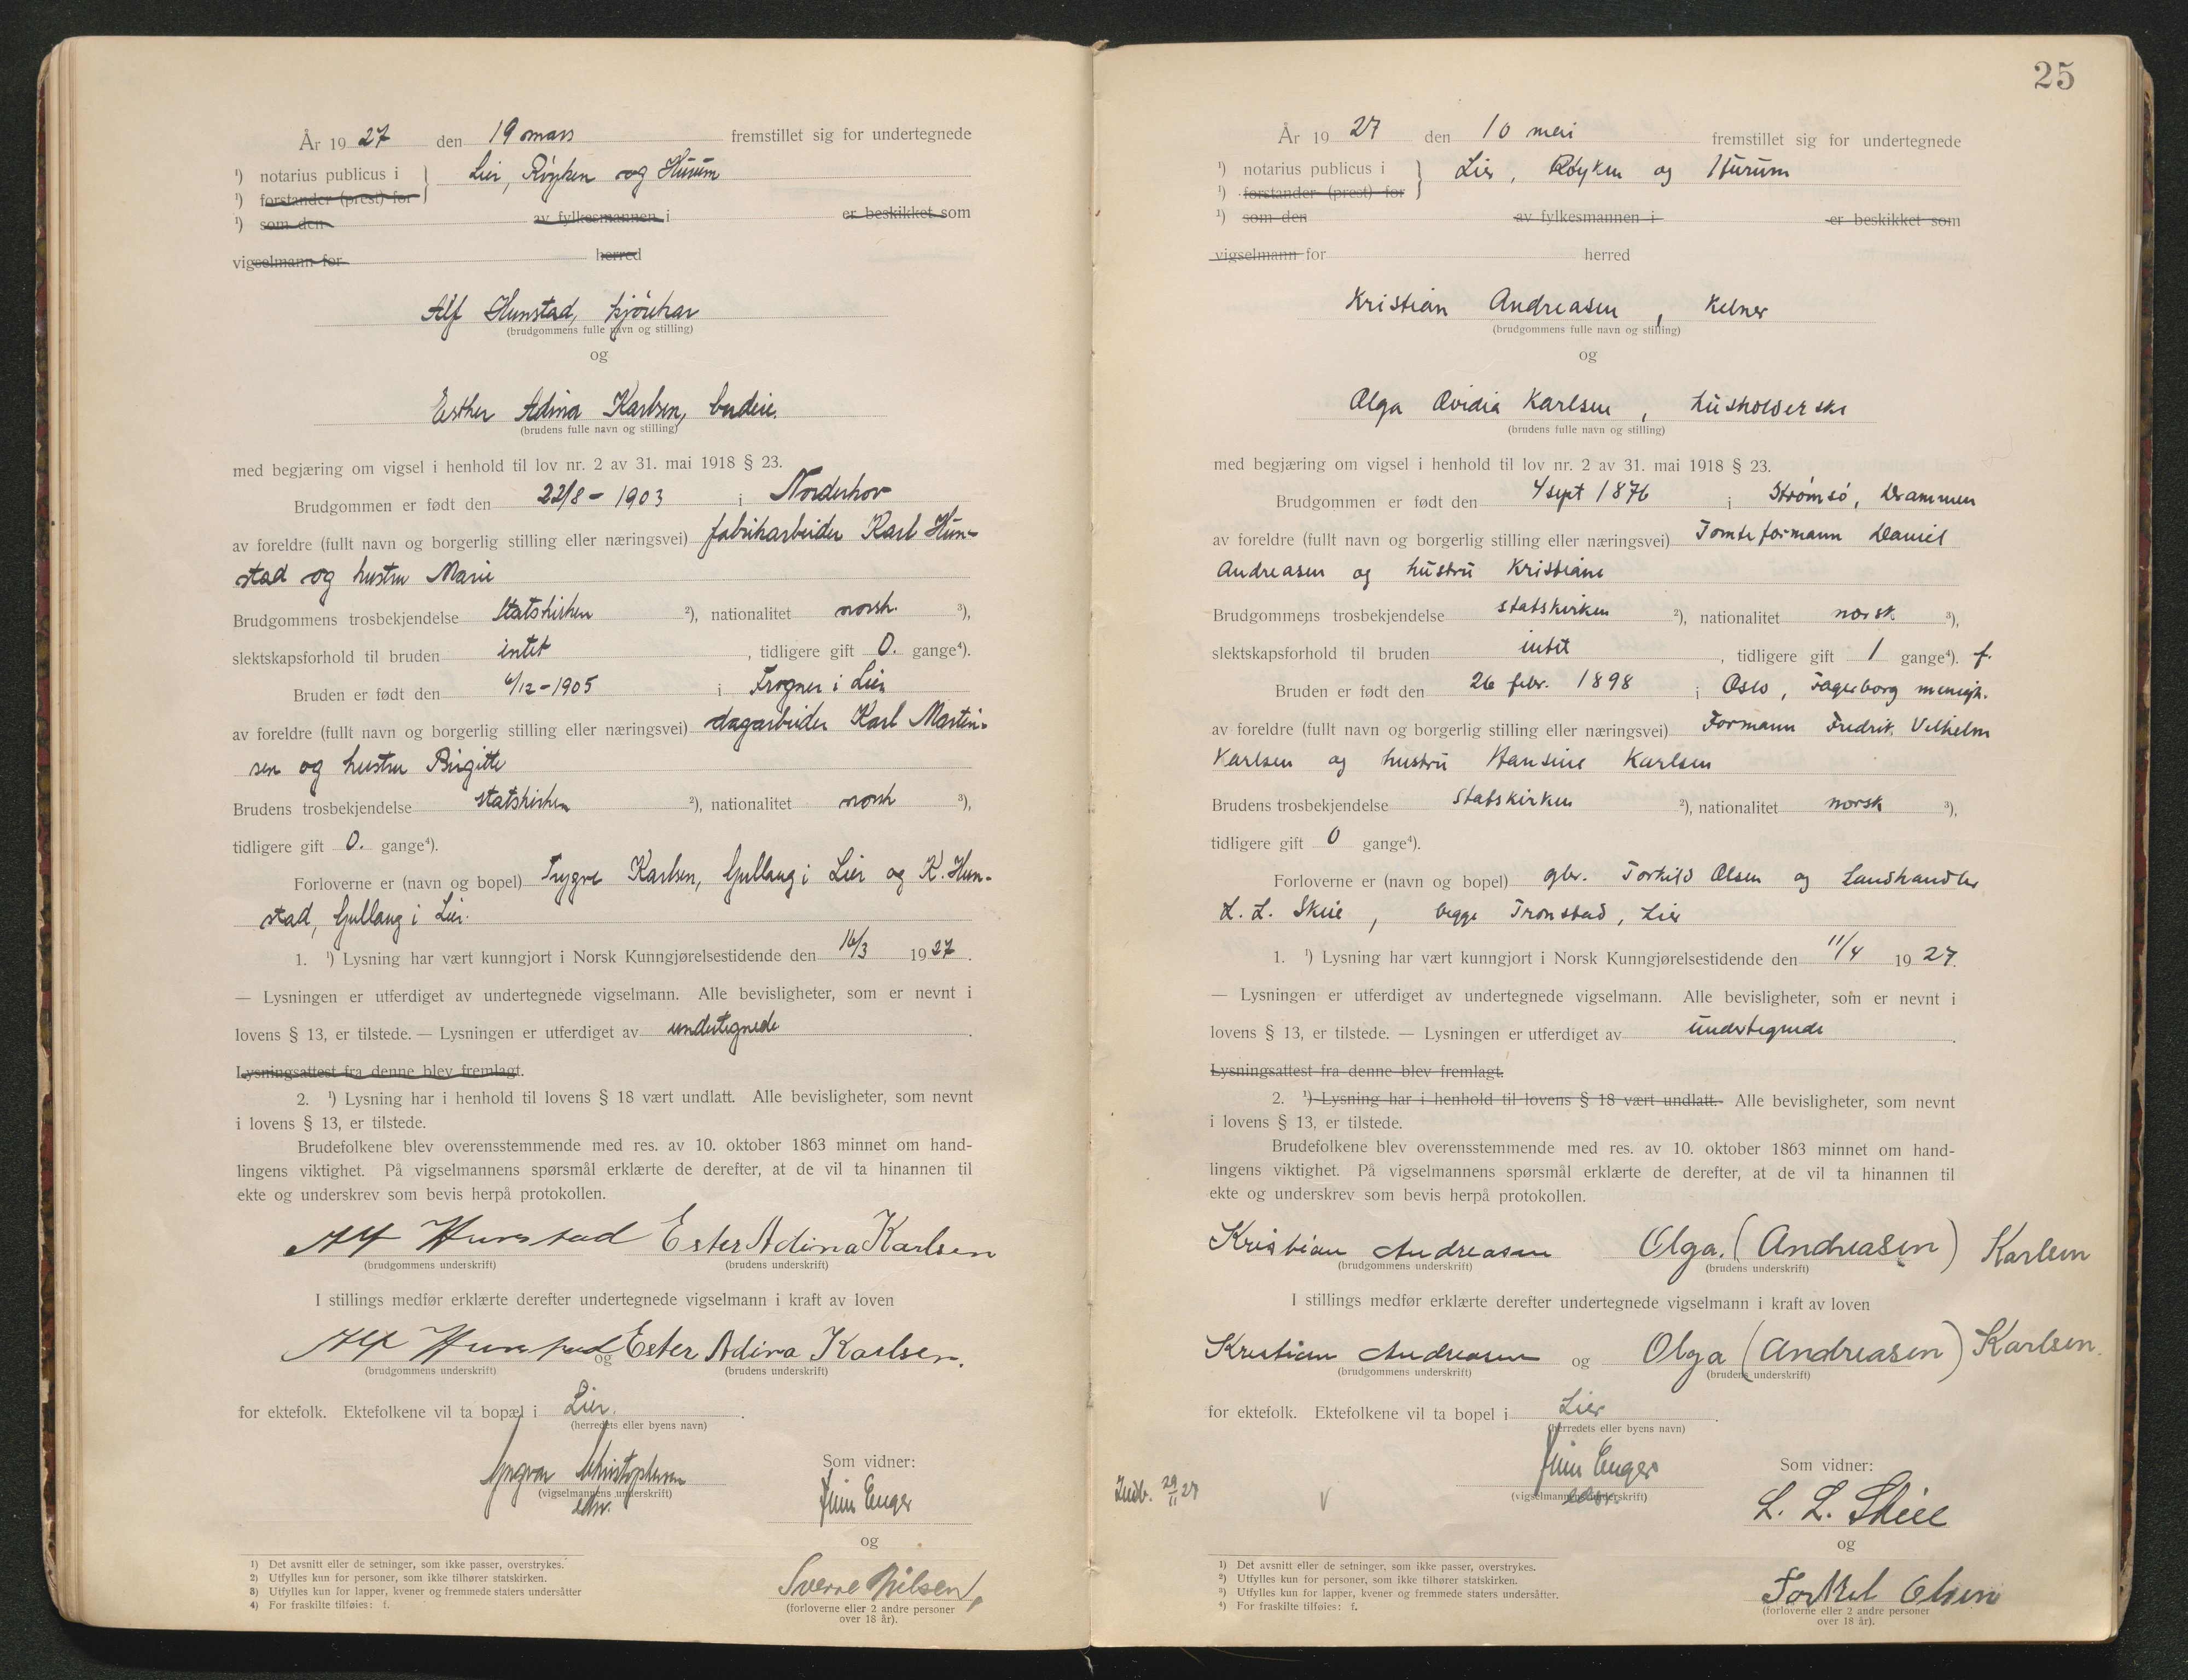 År 1927 den 19 mars fremstillet sig for undertegnede
¹) notarius publicus i } Lier, Røyken og Hurum
¹) forstander (prest) for
¹) som den av fylkesmannen i er beskikket som
vigselmann for herred
Alf Hunstad, kjørekar
(brudgommens fulle navn og stilling)
og
Esther Adina Karlsen, budeie.
(brudens fulle navn og stilling)
med begjæring om vigsel i henhold til lov nr. 2 av 31. mai 1918 § 23.
Brudgommen er født den 22/8 - 1903 i Norderhov
av foreldre (fullt navn og borgerlig stilling eller næringsvei) fabrikarbeider Karl Hun-
stad og hustru Marie
Brudgommens trosbekjendelse Statskirken ²), nationalitet norsk. ³),
slektskapsforhold til bruden intet , tidligere gift 0. gange⁴).
Bruden er født den 6/12 - 1905 i Frogner i Lier
av foreldre (fullt navn og borgerlig stilling eller næringsvei) dagarbeider Karl Martin-
sen og hustru Birgitte
Brudens trosbekjendelse statskirken ²), nationalitet norsk ³),
tidligere gift 0. gange⁴).
Forloverne er (navn og bopel) Trygve Karlsen, Gullaug i Lier og K. Hun-
stad, Gullaug i Lier.
1. ¹) Lysning har vært kunngjort i Norsk Kunngjørelsestidende den 16/3 1927.
— Lysningen er utferdiget av undertegnede vigselmann. Alle bevisligheter, som er nevnt i
lovens § 13, er tilstede. — Lysningen er utferdiget av undertegnede .
Lysningsattest fra denne blev fremlagt.
2. ¹) Lysning har i henhold til lovens § 18 vært undlatt. Alle bevisligheter, som nevnt
i lovens § 13, er tilstede.
Brudefolkene blev overensstemmende med res. av 10. oktober 1863 minnet om hand-
lingens viktighet. På vigselmannens spørsmål erklærte de derefter, at de vil ta hinannen til
ekte og underskrev som bevis herpå protokollen.
Alf Hunstad Ester Adina Karlsen
(brudgommens underskrift) (brudens underskrift)
I stillings medfør erklærte derefter undertegnede vigselmann i kraft av loven
Alf Hunstad og Ester Adina Karlsen.
(brudgommens underskrift) (brudens underskrift)
for ektefolk. Ektefolkene vil ta bopæl i Lier.
(herredets eller byens navn)
Yngvar Christophersen
(vigselmannens underskrift)
Som vidner:
Jens Enger
og
Sverre Nilsen,
(forloverne eller 2 andre personer
over 18 år).
1) Det avsnitt eller de setninger, som ikke passer, overstrykes.
2) Utfylles kun for personer, som ikke tilhører statskirken.
3) Utfylles kun for lapper, kvener og fremmede staters undersåtter
4) For fraskilte tilføies: f.
25
År 1927 den 10 mai fremstillet sig for undertegnede
¹) notarius publicus i } Lier, Røyken og Hurum
¹) forstander (prest) for
¹) som den av fylkesmannen i er beskikket som
vigselmann for herred
Kristian Andreasen, Kelner
(brudgommens fulle navn og stilling)
og
Olga Ovidia Karlsen, husholderske
(brudens fulle navn og stilling)
med begjæring om vigsel i henhold til lov nr. 2 av 31. mai 1918 § 23.
Brudgommen er født den 4 sept 1876 i Strømsø, Drammen
av foreldre (fullt navn og borgerlig stilling eller næringsvei) Tomteformann Daniel
Andreasen og hustru Kristiane
Brudgommens trosbekjendelse statskirken ²), nationalitet norsk ³),
slektskapsforhold til bruden intet , tidligere gift 1 gange⁴). f.
Bruden er født den 26 febr. 1898 i Oslo, Fagerborg menigh.
av foreldre (fullt navn og borgerlig stilling eller næringsvei) Formann Fredrik Vilhelm
Karlsen og hustru Hansine Karlsen
Brudens trosbekjendelse Statskirken ²), nationalitet norsk ³),
tidligere gift 0 gange⁴).
Forloverne er (navn og bopel) gbr. Torkild Olsen og Landhandler
L. L. Skiie, begge Tronstad, Lier
1. ¹) Lysning har vært kunngjort i Norsk Kunngjørelsestidende den 11/4 1927.
— Lysningen er utferdiget av undertegnede vigselmann. Alle bevisligheter, som er nevnt i
lovens § 13, er tilstede. — Lysningen er utferdiget av undertegnede .
Lysningsattest fra denne blev fremlagt.
2. ¹) Lysning har i henhold til lovens § 18 vært undlatt. Alle bevisligheter, som nevnt
i lovens § 13, er tilstede.
Brudefolkene blev overensstemmende med res. av 10. oktober 1863 minnet om hand-
lingens viktighet. På vigselmannens spørsmål erklærte de derefter, at de vil ta hinannen til
ekte og underskrev som bevis herpå protokollen.
Kristian Andreasen Olga (Andreasen) Karlsen
(brudgommens underskrift) (brudens underskrift)
I stillings medfør erklærte derefter undertegnede vigselmann i kraft av loven
Kristian Andreasen og Olga (Andreasen) Karlsen.
(brudgommens underskrift) (brudens underskrift)
for ektefolk. Ektefolkene vil ta bopel i Lier .
(herredets eller byens navn)
Jens Enger
(vigselmannens underskrift)
Indb. 29/11 27 v
Som vidner:
L. L. Skiie
og
Torkel Olsen
(forloverne eller 2 andre personer
over 18 år).
1) Det avsnitt eller de setninger, som ikke passer, overstrykes.
2) Utfylles kun for personer, som ikke tilhører statskirken.
3) Utfylles kun for lapper, kvener og fremmede staters undersåtter.
4) For fraskilte tilføies: f.